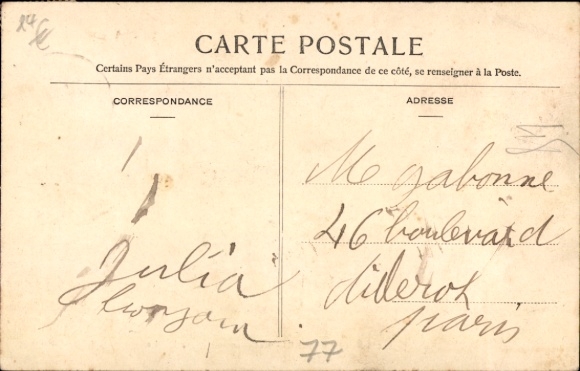 CARTE POSTALE
Certains Pays Étrangers n'acceptant pas la Correspondance de ce côté, se renseigner à la Poste.
CORRESPONDANCE
Julia
ADRESSE
M gabonne
46 boulevard
diderot
paris
77